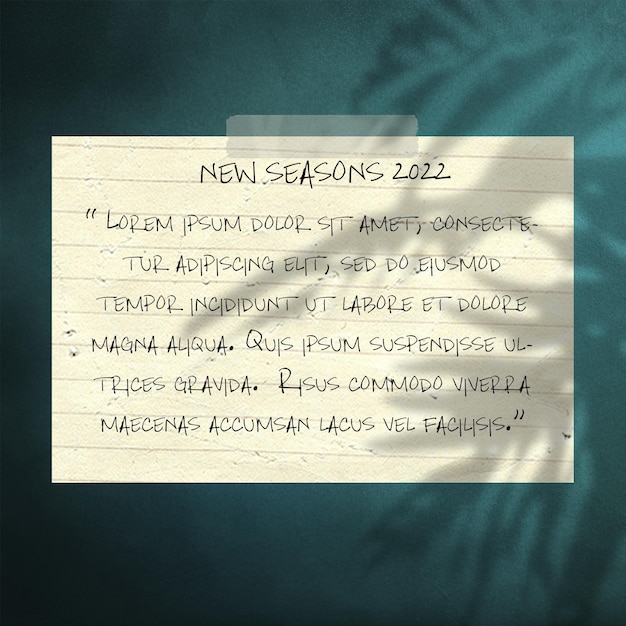 NEW SEASONS 2022
“ LOREM IPSUM DOLOR SIT AMET, CONSECTE-
TUR ADIPISCING ELIT, SED DO EIUSMOD
TEMPOR INCIDIDUNT UT LABORE ET DOLORE
MAGNA ALIQUA. QUIS IPSUM SUSPENDISSE UL-
TRICES GRAVIDA. RISUS COMMODO VIVERRA
MAECENAS ACCUMSAN LACUS VEL FACILISIS.”